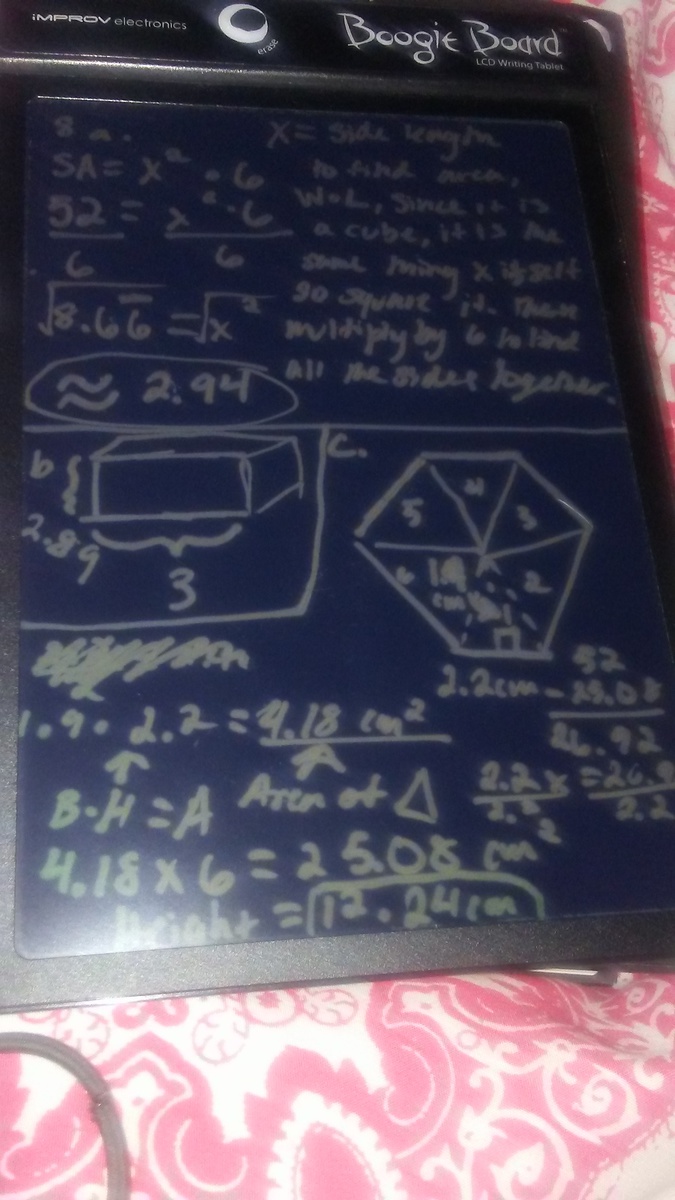 iMPROV electronics
erase
Boogie Board
LCD Writing Tablet
8 a.
SA = x² · 6
52 = x² · 6
6 6
√8.66 = √x²
≈ 2.94
X = side length
to find area,
W·L, since it is
a cube, it is the
same thing x itself
so square it. Then
multiply by 6 to find
all the sides together.
b
2.89
3
c.
5 4 3
6 1.9 2
cm 1
2.2cm
1.9 · 2.2 = 4.18 cm²
B·H = A Area of △
4.18 x 6 = 25.08 cm²
52
- 25.08
26.92
2.2x = 26.9
2.2 2.2
Height = 12.24cm